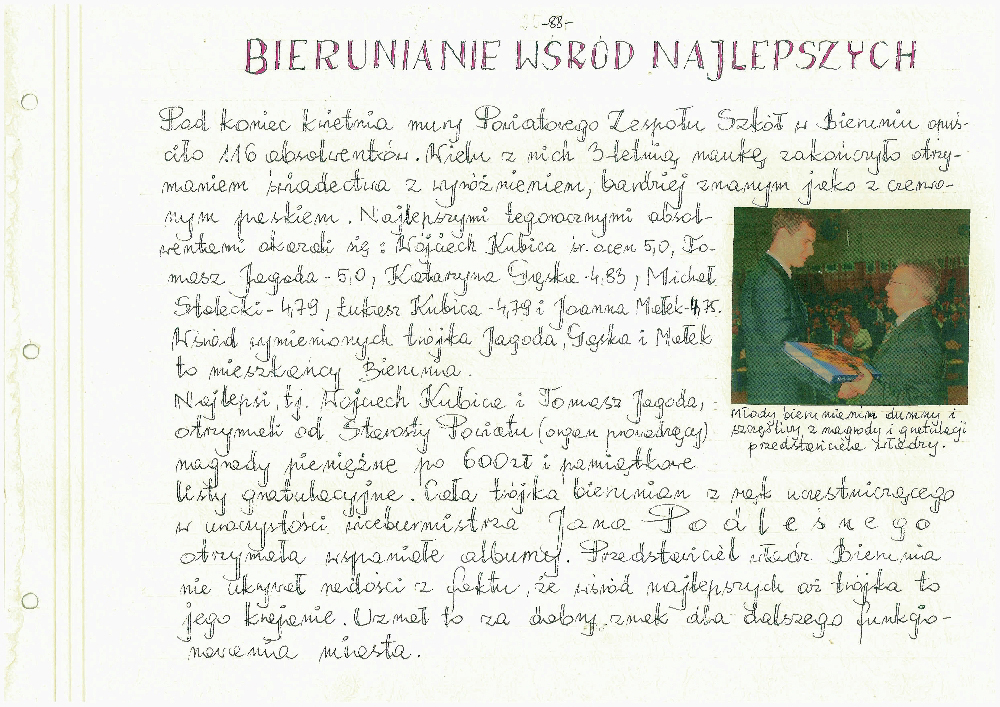 -88-
BIERUNIANIE WŚRÓD NAJLEPSZYCH
Pod koniec kwietnia mury Powiatowego Zespołu Szkół w Bieruniu opuś-
ciło 116 absolwentów. Wielu z nich 3-letnią naukę zakończyło otrzy-
maniem świadectwa z wyróżnieniem, bardziej znanym jako z czerwo-
nym paskiem. Najlepszymi tegorocznymi absol-
wentami okazali się: Wojciech Kubica śr. ocen 5,0, To-
masz Jagoda - 5,0, Katarzyna Gęska - 4,83, Michał
Stolecki - 4,79, Łukasz Kubica - 4,79 i Joanna Małek - 4,75.
Wśród wymienionych trójka Jagoda, Gęska i Małek
to mieszkańcy Bierunia.
Najlepsi, tj. Wojciech Kubica i Tomasz Jagoda,
otrzymali od Starosty Powiatu (organ prowadzący)
nagrody pieniężne po 600 zł i pamiątkowe
listy gratulacyjne. Cała trójka bierunian z rąk uczestniczącego
w uroczystości wiceburmistrza Jana Podleśnego
otrzymała wspaniałe albumy. Przedstawiciel władz Bierunia
nie ukrywał radości z faktu, że wśród najlepszych aż trójka to
jego krajanie. Uznał to za dobry znak dla dalszego funkcjo-
nowania miasta.
Młody bierunianin dumny i
szczęśliwy z nagrody i gratulacji
przedstawiciela władzy.